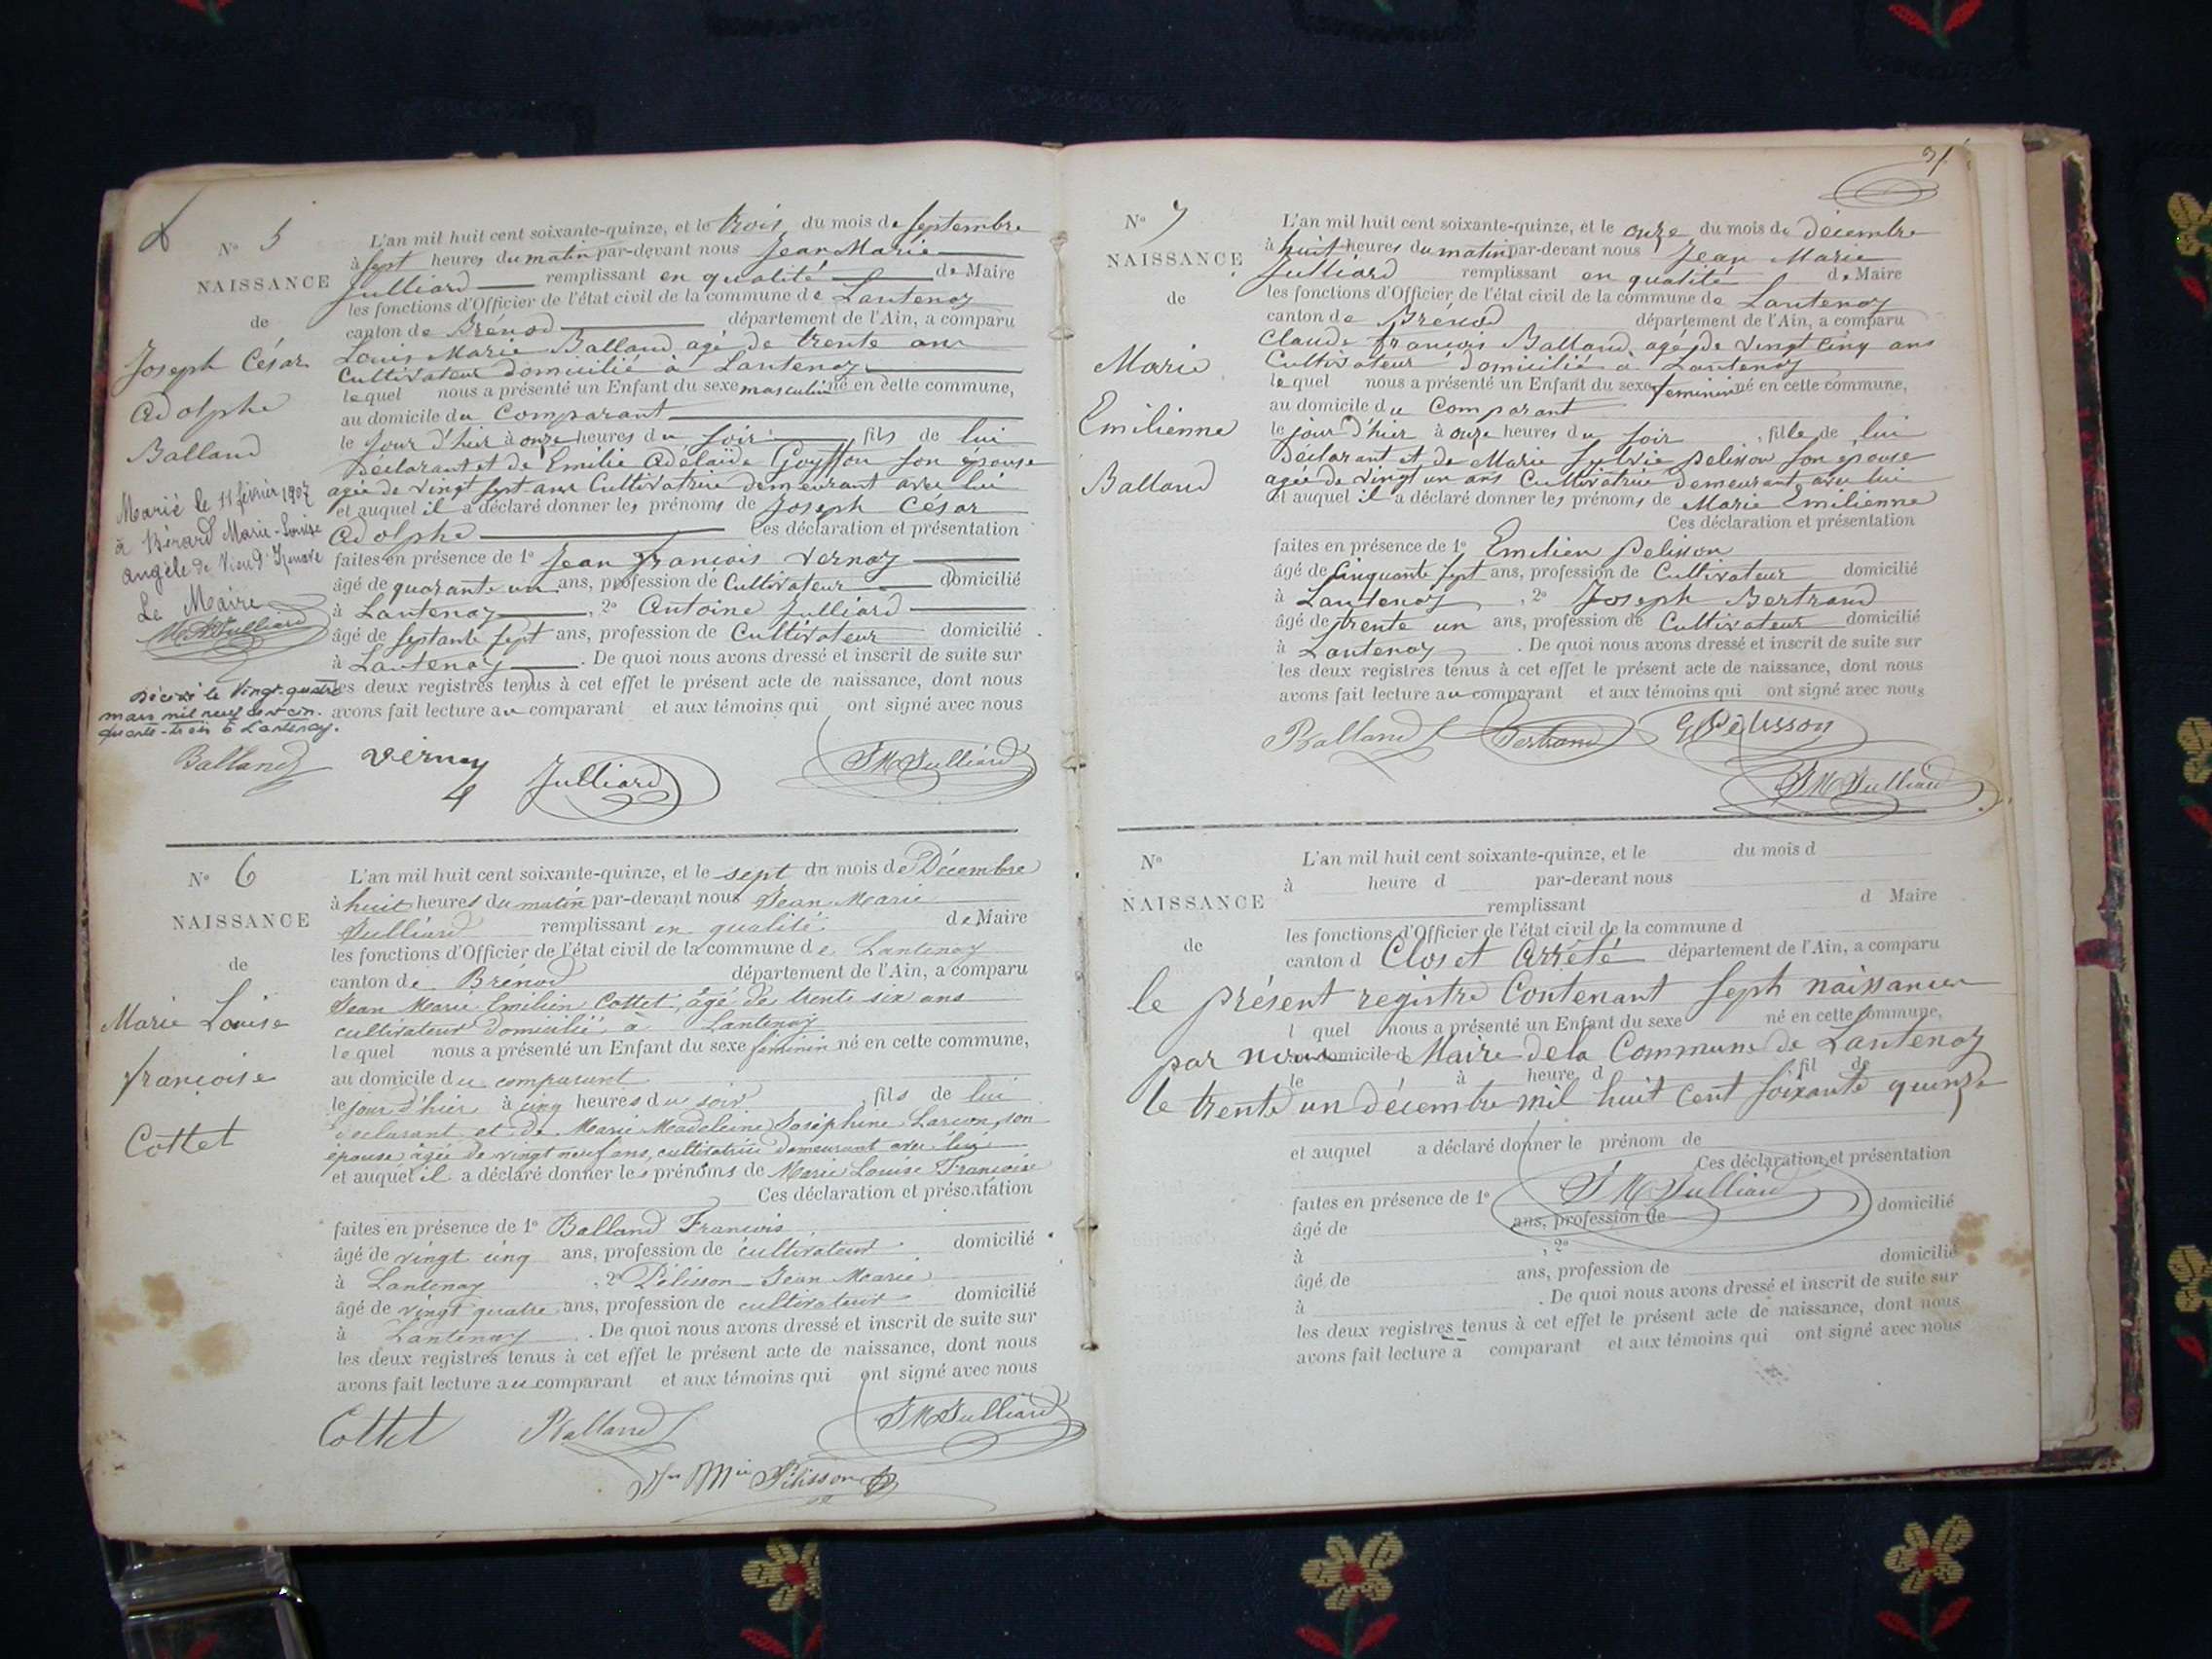 N° 5
NAISSANCE
de
Joseph César
Adolphe
Balland
Marié le 11 février 1907
à Bérard Marie-Louise
Angèle de Vieu d'Izenave
Le Maire
Décédé le vingt-quatre
mars mil neuf cent cin-
quante-trois à Lantenay.
L'an mil huit cent soixante-quinze, et le trois du mois de Septembre
à sept heures du matin par-devant nous Jean Marie
Julliard remplissant en qualité de Maire
les fonctions d'Officier de l'état civil de la commune de Lantenay
canton de Brénod département de l'Ain, a comparu
Louis Marie Balland agé de trente ans
Cultivateur domicilié à Lantenay
lequel nous a présenté un Enfant du sexe masculin né en cette commune,
au domicile du Comparant
le jour d'hier à onze heures du soir, fils de lui
Déclarant et de Emilie Adelaïde son épouse
agée de vingt sept ans Cultivatrice demeurant avec lui
et auquel il a déclaré donner les prénoms de Joseph César
Adolphe Ces déclaration et présentation
faites en présence de 1° Jean François Vernay
âgé de quarante un ans, profession de Cultivateur domicilié
à Lantenay, 2° Antoine Julliard
âgé de septante sept ans, profession de Cultivateur domicilié
à Lantenay. De quoi nous avons dressé et inscrit de suite sur
les deux registres tenus à cet effet le présent acte de naissance, dont nous
avons fait lecture au comparant et aux témoins qui ont signé avec nous
Balland Vernay Julliard JMJulliard
N° 6
NAISSANCE
de
Marie Louise
françoise
Cottet
L'an mil huit cent soixante-quinze, et le sept du mois de Décembre
à huit heures du matin par-devant nous Jean Marie
Julliard remplissant en qualité de Maire
les fonctions d'Officier de l'état civil de la commune de Lantenay
canton de Brénod département de l'Ain, a comparu
Jean Marie Emilien Cottet, âgé de trente six ans
cultivateur domicilié à Lantenay
lequel nous a présenté un Enfant du sexe féminin né en cette commune,
au domicile du comparant
le jour d'hier à cinq heures du soir, fils de lui
déclarant et de Marie Madeleine Joséphine Larçon, son
épouse âgée de vingt neuf ans, cultivatrice demeurant avec lui
et auquel il a déclaré donner les prénoms de Marie Louise Françoise
Ces déclaration et présentation
faites en présence de 1° Balland François
âgé de vingt cinq ans, profession de cultivateur domicilié
à Lantenay, 2° Pélisson Jean Marie
âgé de vingt quatre ans, profession de cultivateur domicilié
à Lantenay. De quoi nous avons dressé et inscrit de suite sur
les deux registres tenus à cet effet le présent acte de naissance, dont nous
avons fait lecture au comparant et aux témoins qui ont signé avec nous
Cottet Balland JMJulliard
Jn Mie Pélisson
31
N° 7
NAISSANCE
de
Marie
Emilienne
Balland
L'an mil huit cent soixante-quinze, et le onze du mois de décembre
à huit heures du matin par-devant nous Jean Marie
Julliard remplissant en qualité de Maire
les fonctions d'Officier de l'état civil de la commune de Lantenay
canton de Brénod département de l'Ain, a comparu
Claude françois Balland, agé de vingt cinq ans
Cultivateur domicilié à Lantenay
lequel nous a présenté un Enfant du sexe feminin né en cette commune,
au domicile du Comparant
le jour d'hier à onze heures du soir, fille de lui
Déclarant et de Marie Sylvie Pelisson son épouse
agée de vingt un ans Cultivatrice demeurant avec lui
et auquel il a déclaré donner les prénoms de Marie Emilienne
Ces déclaration et présentation
faites en présence de 1° Emilien Pelisson
âgé de Cinquante sept ans, profession de Cultivateur domicilié
à Lantenay, 2° Joseph Bertrand
âgé de trente un ans, profession de Cultivateur domicilié
à Lantenay. De quoi nous avons dressé et inscrit de suite sur
les deux registres tenus à cet effet le présent acte de naissance, dont nous
avons fait lecture au comparant et aux témoins qui ont signé avec nous
Balland Bertrand Pélisson
JMJulliard
N°
NAISSANCE
de
L'an mil huit cent soixante-quinze, et le du mois d
à heure d par-devant nous
remplissant d Maire
les fonctions d'Officier de l'état civil de la commune d
canton d Clos et Arrêté département de l'Ain, a comparu
le présent registre Contenant sept naissances
l quel nous a présenté un Enfant du sexe né en cette commune,
par nous Maire de la Commune de Lantenay
au domicile d
le à heure d fil de
le trente un décembre mil huit cent soixante quinze
et auquel a déclaré donner le prénom de
Ces déclaration et présentation
faites en présence de 1° JMJulliard
âgé de ans, profession de domicilié
à , 2°
âgé de ans, profession de domicilié
à . De quoi nous avons dressé et inscrit de suite sur
les deux registres tenus à cet effet le présent acte de naissance, dont nous
avons fait lecture à comparant et aux témoins qui ont signé avec nous